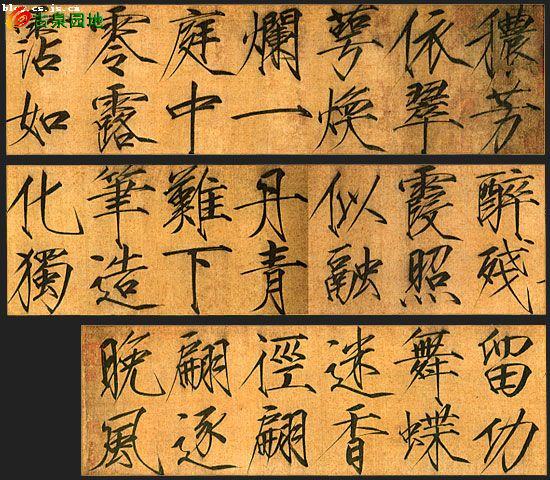 志泉园地
穠芳
依翠
萼煥
爛一
庭中
零露
霑如
醉殘
霞照
似融
丹青
難下
筆造
化獨
留功
舞蝶
迷香
徑翩
翩逐
晚風